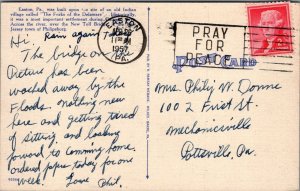 Easton, Pa. was built upon the site of an old Indian
village called "The Forks of the Delaware"
it was a most important settlement during
Across the river, over the New Toll Bridge
Jersey town of Philipsburg.
EASTON
1957
PA.
PRAY
FOR
PEACE
POST CARD
Hi Rain again Today
The bridge on
Picture has been
washed away by the
Floods. nothing new
here and getting tired
of sitting and looking
forward to comming home.
ordered papers today for one
week. Love Phil.
Mrs. Philip W. Donne
100 2 First St.
Mechanicsville
Pottsville, Pa